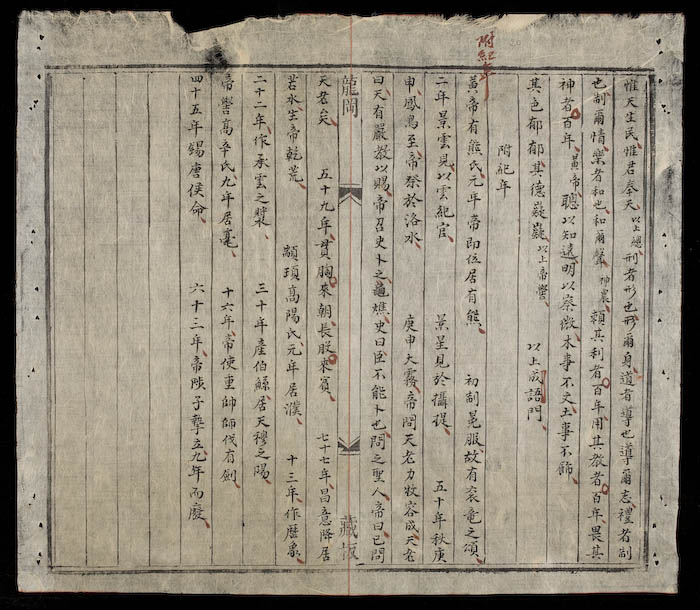 附紀年
惟天生民惟君奉天以上總刑者形也形爾身道者導也導爾志禮者制
也制爾情樂者和也和爾聲神農賴其利者百年用其教者百年畏其
神者百年黃帝聰以知遠明以察微木事不文土事不飾
其色郁郁其德嶷嶷以上帝嚳 以上成語門
附紀年
黃帝有熊氏元年帝即位居有熊 初制冕服故有袞龍之頌
二年景雲見以雲紀官 景星見於攝提 五十年秋庚
申鳳鳥至帝祭於洛水 庚申大霧帝問天老力牧容成天老
曰天有嚴教以賜帝召史卜之龜燋史曰臣不能卜也問之聖人帝曰已問
天老矣 五十九年貫胸來朝長股來賓 七十七年昌意降居
若水生帝乾荒 顓頊高陽氏元年居濮 十三年作曆象
二十二年作承雲之樂 三十年產伯鯀居天穆之陽
帝嚳高辛氏九年居亳 十六年帝使重帥師伐有
四十五年錫唐侯命 六十三年帝陟子摯立九年而廢
龍岡
藏板